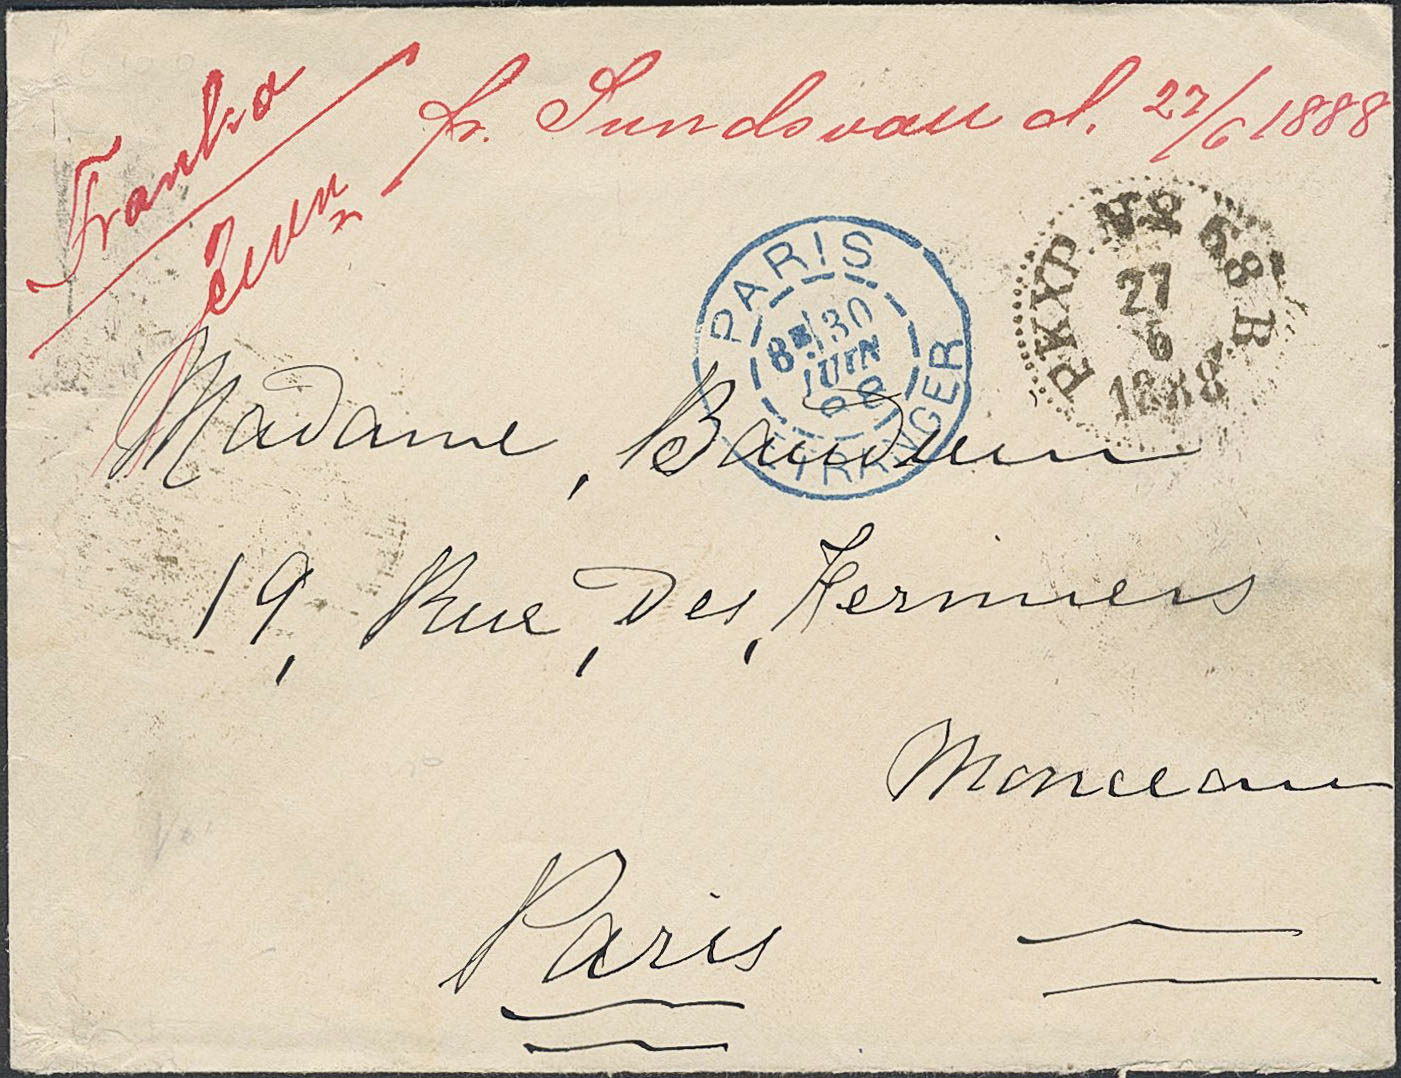 Franko fr. Sundsvall d. 27/6 1888
PKXP. No 58 B
27
6
1888
PARIS
8E 30
JUIN
88
ETRANGER
Madame, Bauduin
19, Rue, Des, Fermiers
Monceau
Paris